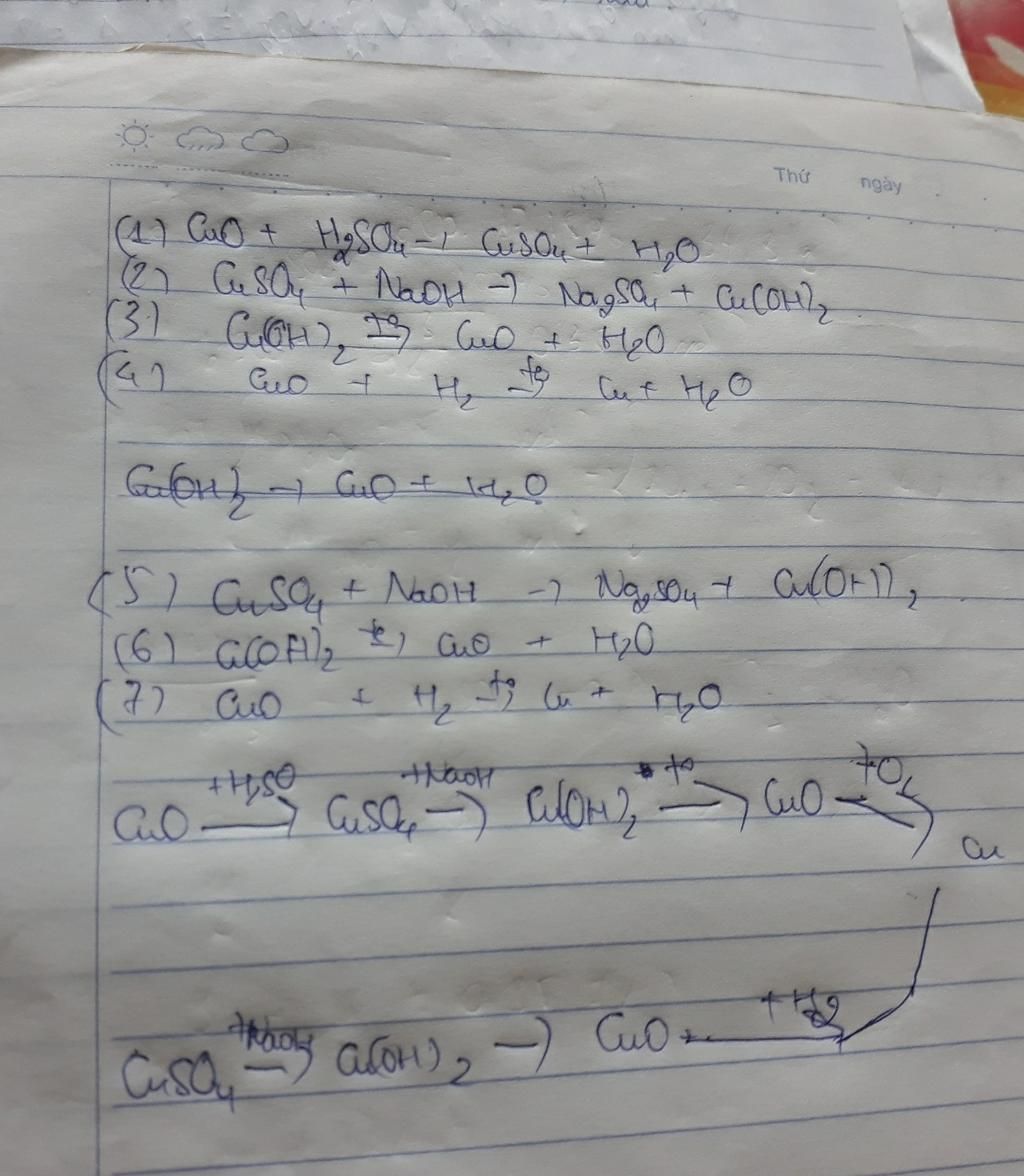 Thứ ngày
(1) CuO + H2SO4 → CuSO4 + H2O
(2) CuSO4 + NaOH → Na2SO4 + Cu(OH)2
(3) Cu(OH)2 t°→ CuO + H2O
(4) CuO + H2 t°→ Cu + H2O
Cu(OH)2 → CuO + H2O
(5) CuSO4 + NaOH → Na2SO4 + Cu(OH)2
(6) Cu(OH)2 t°→ CuO + H2O
(7) CuO + H2 t°→ Cu + H2O
+H2SO +NaOH t° +O2
CuO → CuSO4 → Cu(OH)2 → CuO →
Cu
+NaOH +H2
CuSO4 → Cu(OH)2 → CuO →